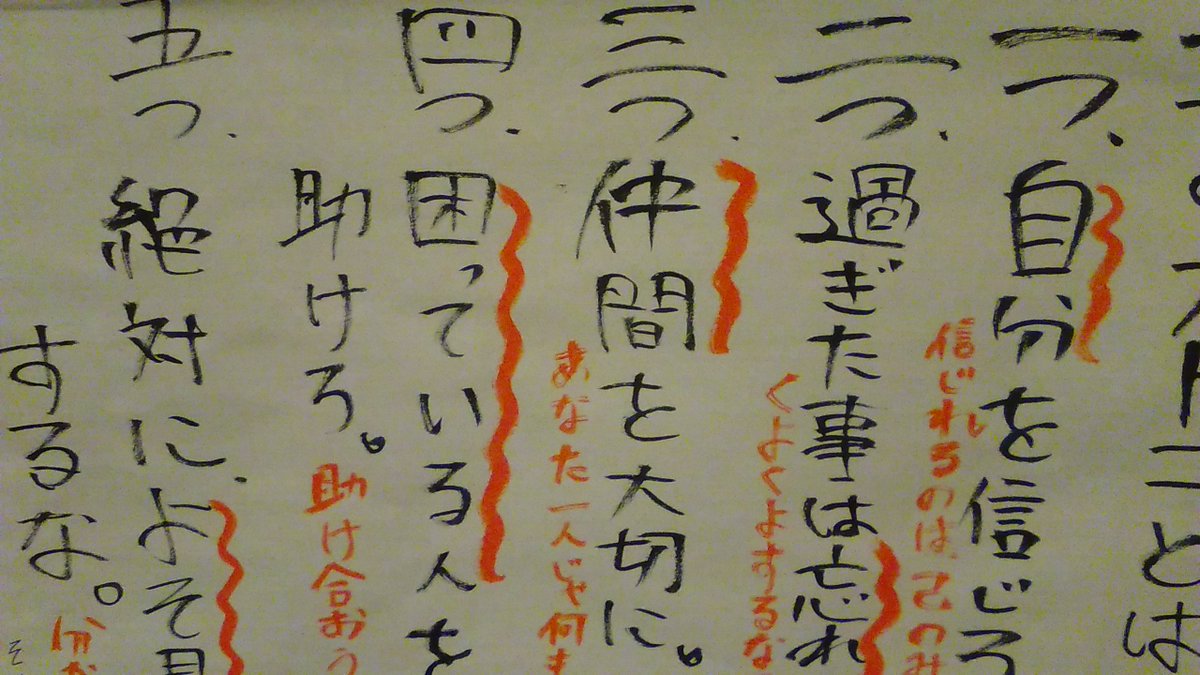 ことは
一つ、自分を信じろ
信じれるのは、己のみ
二つ、過ぎた事は忘れ
くよくよするな
三つ、仲間を大切に。
あなた一人じゃ何も
四つ、困っている人を
助けろ。助け合おう
五つ、絶対に、よそ見
するな。